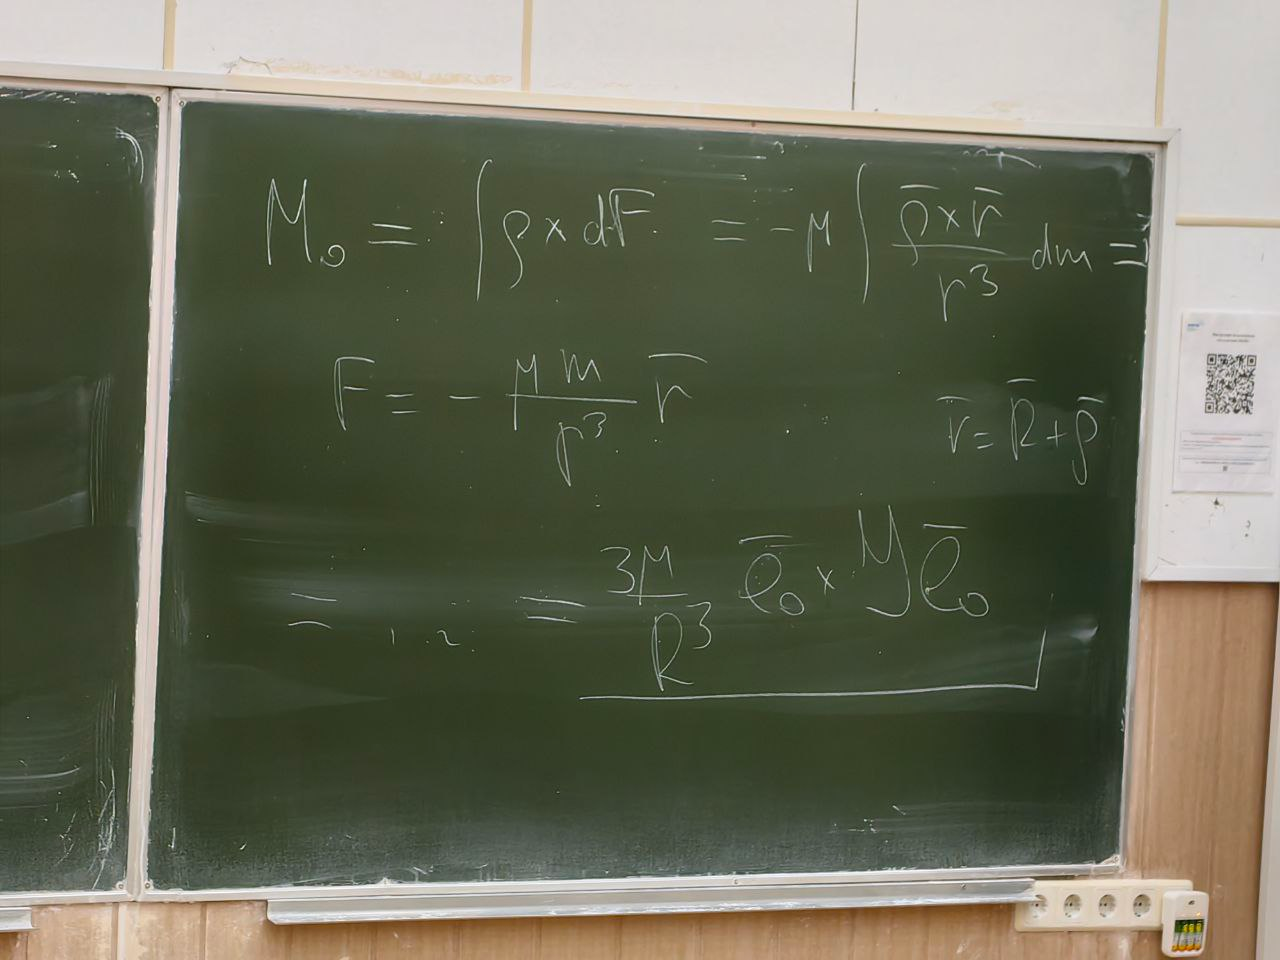 M₀ = ∫ ρ × dF̄ = -μ ∫ (ρ̄ × r̄)/r³ dm =
F̄ = - (μ m)/r³ r̄
r̄ = R̄ + ρ̄
= ... = 3μ/R³ ē₀ × Yē₀